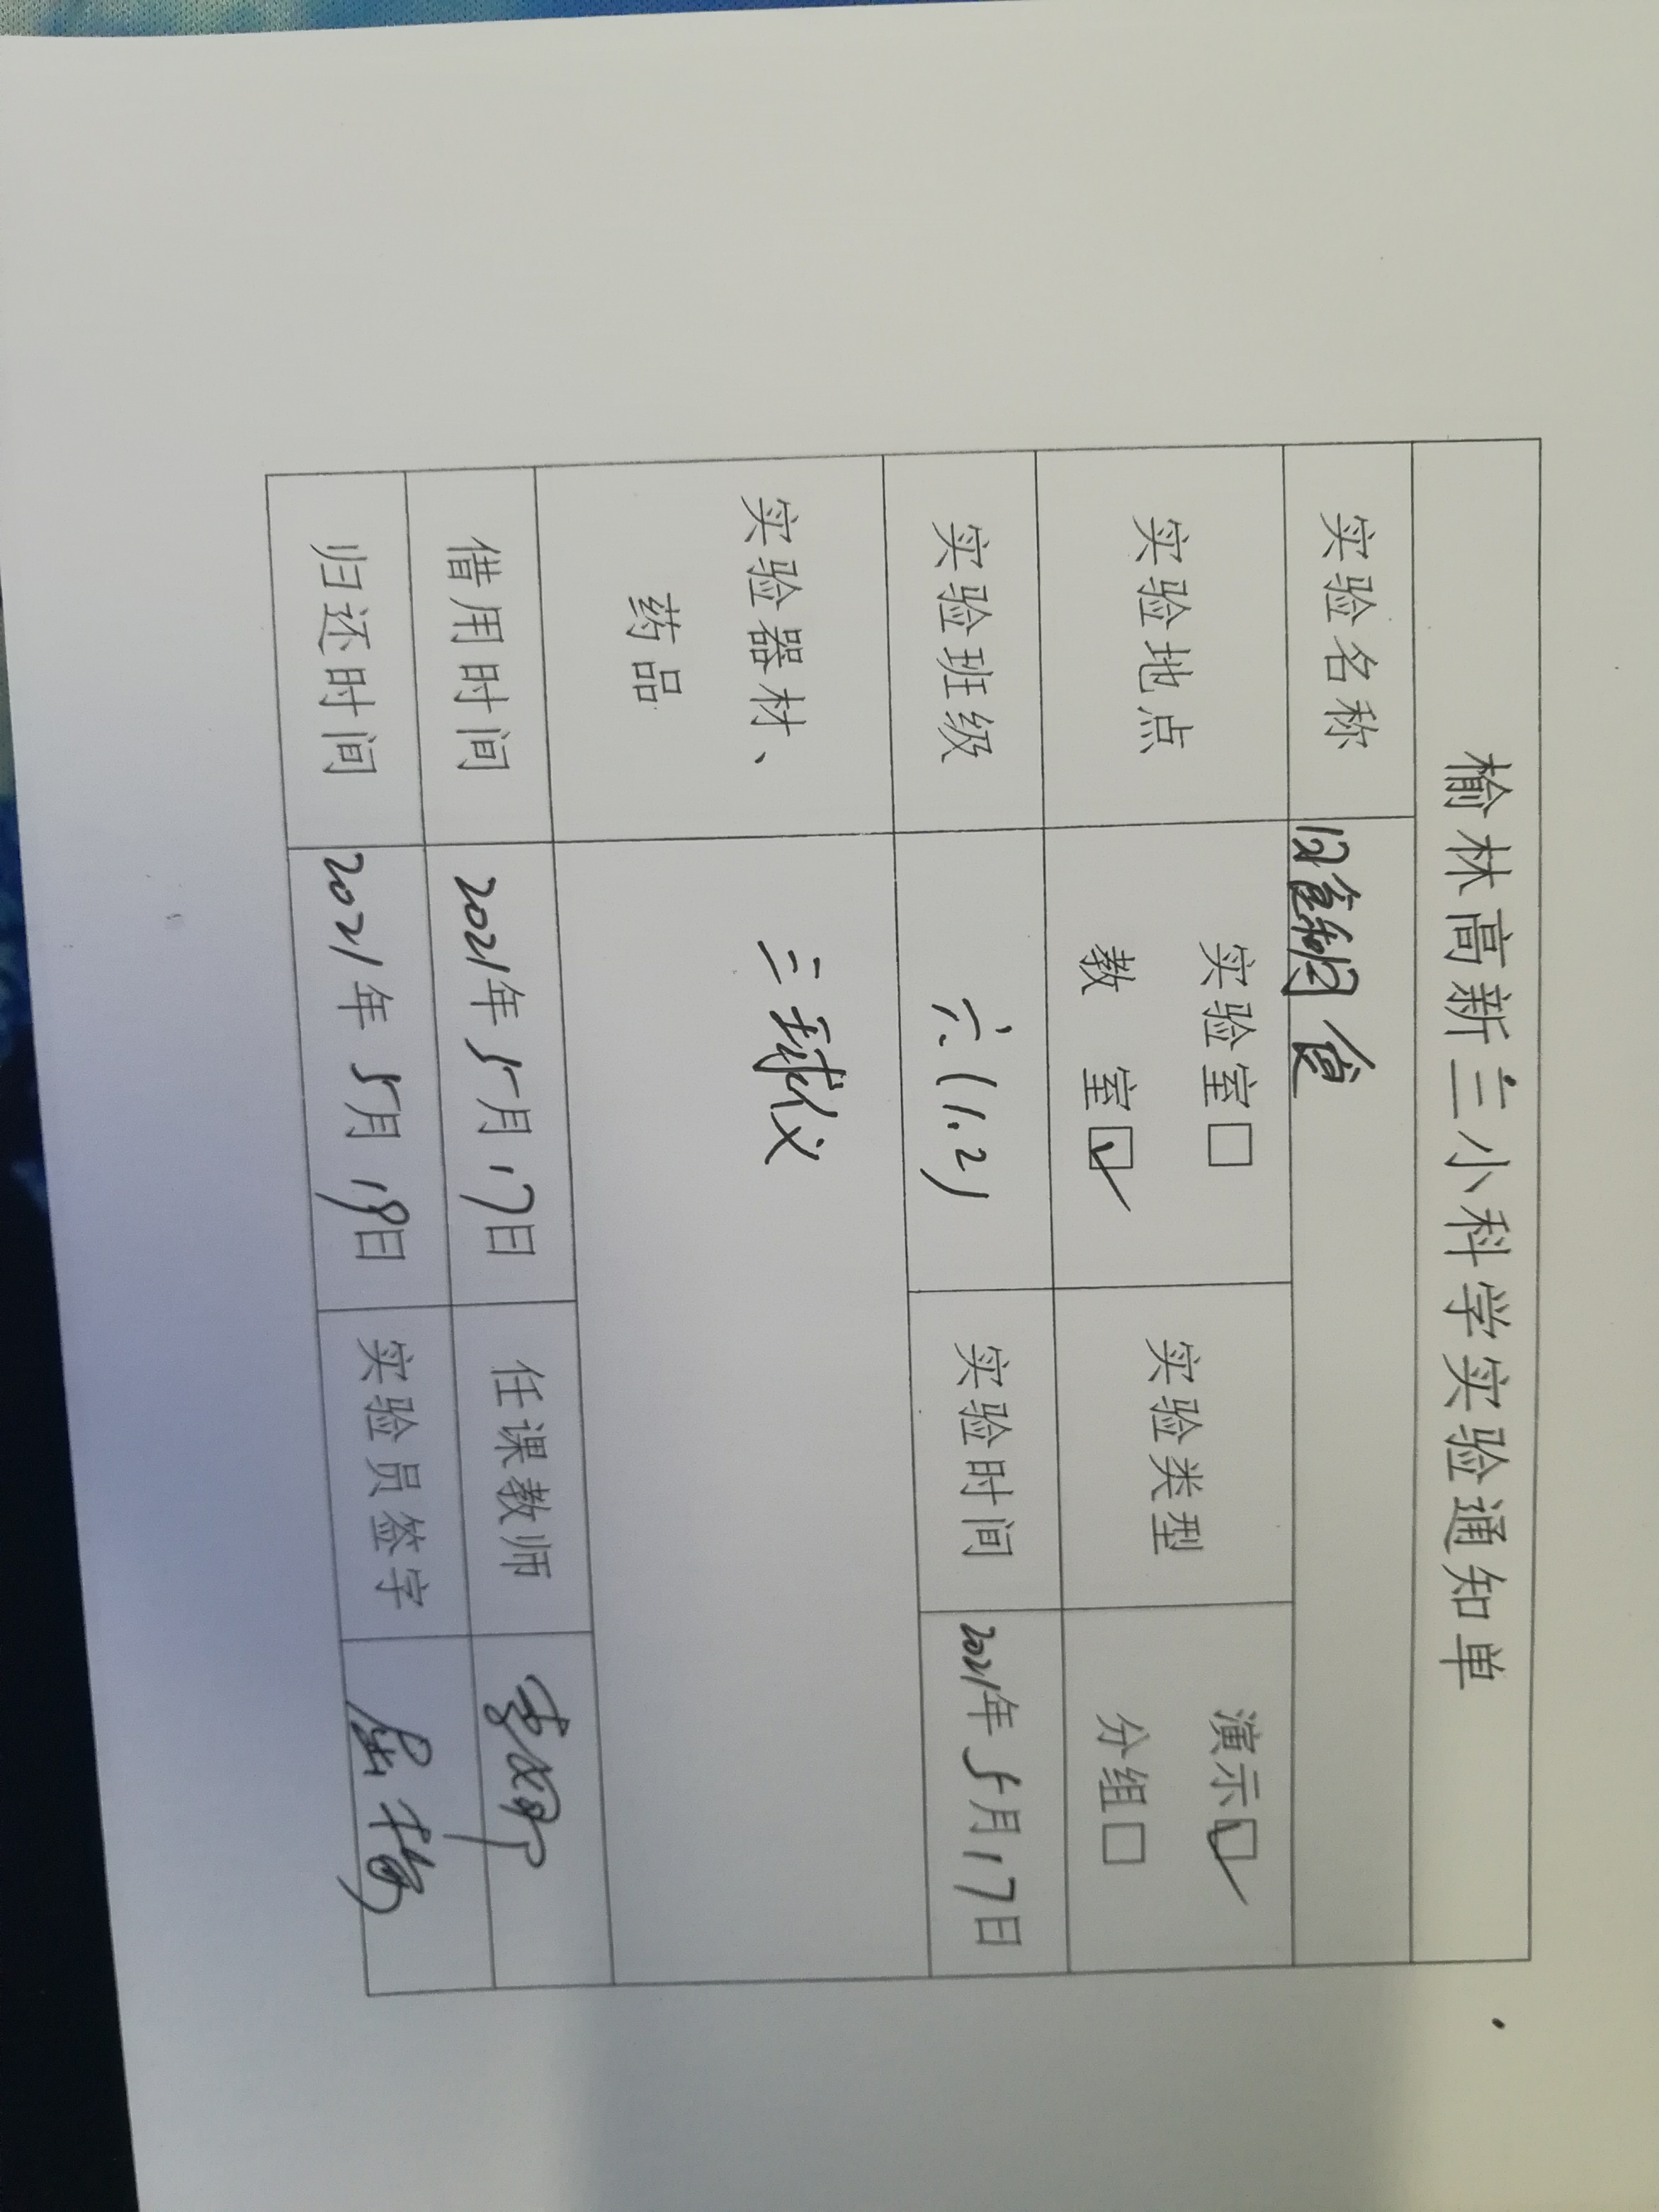 榆林高新三小科学实验通知单
实验名称 日食和月食
实验地点 实验室□ 教 室☑ 实验类型 演示☑ 分组□
实验班级 六.(1.2) 实验时间 2021年5月17日
实验器材、药品 三球仪
借用时间 2021年5月17日 任课教师
归还时间 2021年5月19日 实验员签字